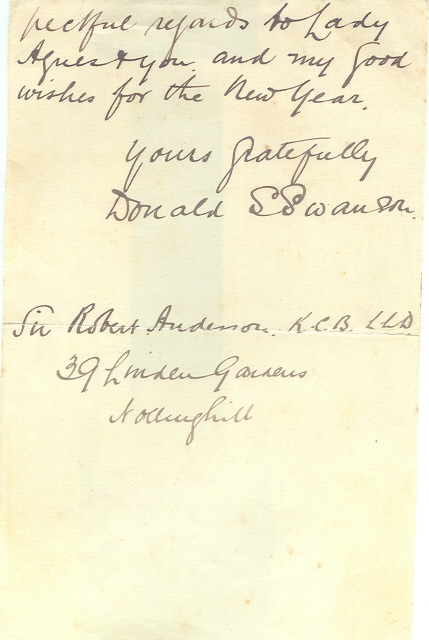 pectful regards to Lady
Agnes & you and my good
wishes for the New Year.
Yours gratefully
Donald S Swanson.
Sir Robert Anderson. K.C.B. LLD
39 Linden Gardens
Nottinghill